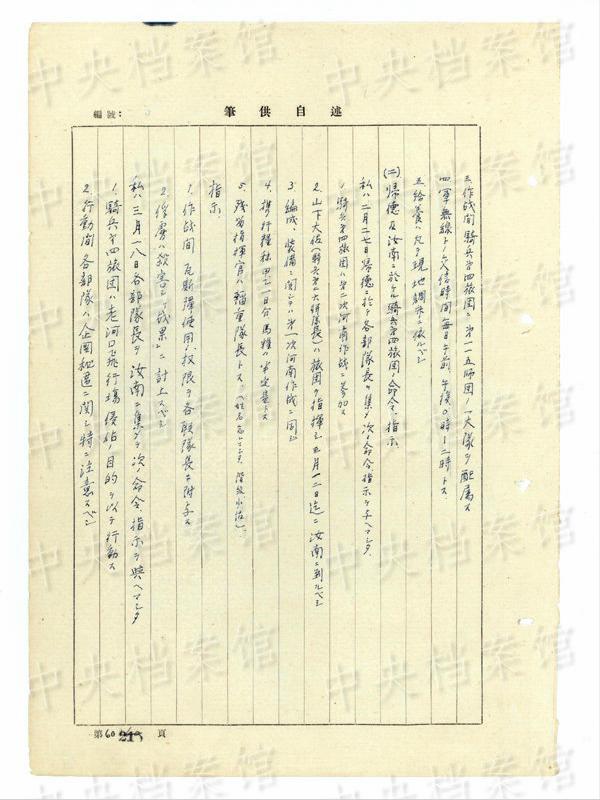 編號:
筆供自述
三、作战间騎兵第四旅団ニ第一一五师団ノ一大隊ヲ配属ス
四、軍無線トノ交信時間毎日午前、午後0時—二時トス、
五、給養ハ凡テ現地調弁ニ依ルベシ
(二)帰德及汝南ニ於ケル騎兵第四旅団ノ命令、指示
私ハ二月二七日帰德ニ於テ各部隊長ヲ集メ次ノ命令、指示ヲ与ヘマシタ
1. 騎兵第四旅団ハ第二次河南作战ニ参加ス
2. 山下大佐(騎兵第 大 隊長)ハ旅団ヲ指揮シ三月一二日迄ニ汝南ニ到ルベシ
3. 編成、装備ニ関シテハ第一次河南作战ニ同ジ
4. 携行糧秣甲乙一日分 馬糧ハ定量トス
5. 残留指揮官ハ輜重隊長トス、(姓名忘レマシタ、階級少佐)、
指示
1. 作战间瓦斯弾使用ノ权限ヲ各联隊長ニ附与ス
2. 俘虜ハ殺害シ「战果」ニ計上スベシ
私ハ三月一八日各部隊長ヲ汝南ニ集メテ次ノ命令、指示ヲ與ヘマシタ
1. 騎兵第四旅団ハ老河口飛行場侵略ノ目的ヲ以テ行動ス
2. 行動间各部隊ハ企図秘匿ニ関シ特ニ注意スベシ
第60頁